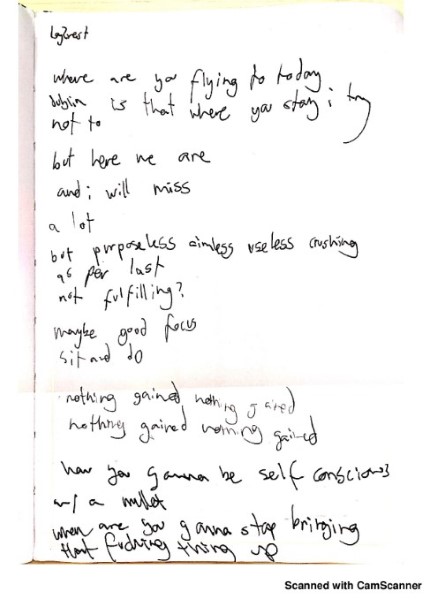 where are you flying to today
dublin is that where you stay i try
not to
but here we are
and i will miss
a lot
but purposeless aimless useless crushing
as per last
not fulfilling?
maybe good focus
sit and do
nothing gained nothing gained
nothing gained nothing gained
how you gonna be self conscious
w/ a mullet
when are you gonna stop bringing
that fucking thing up
Scanned with CamScanner